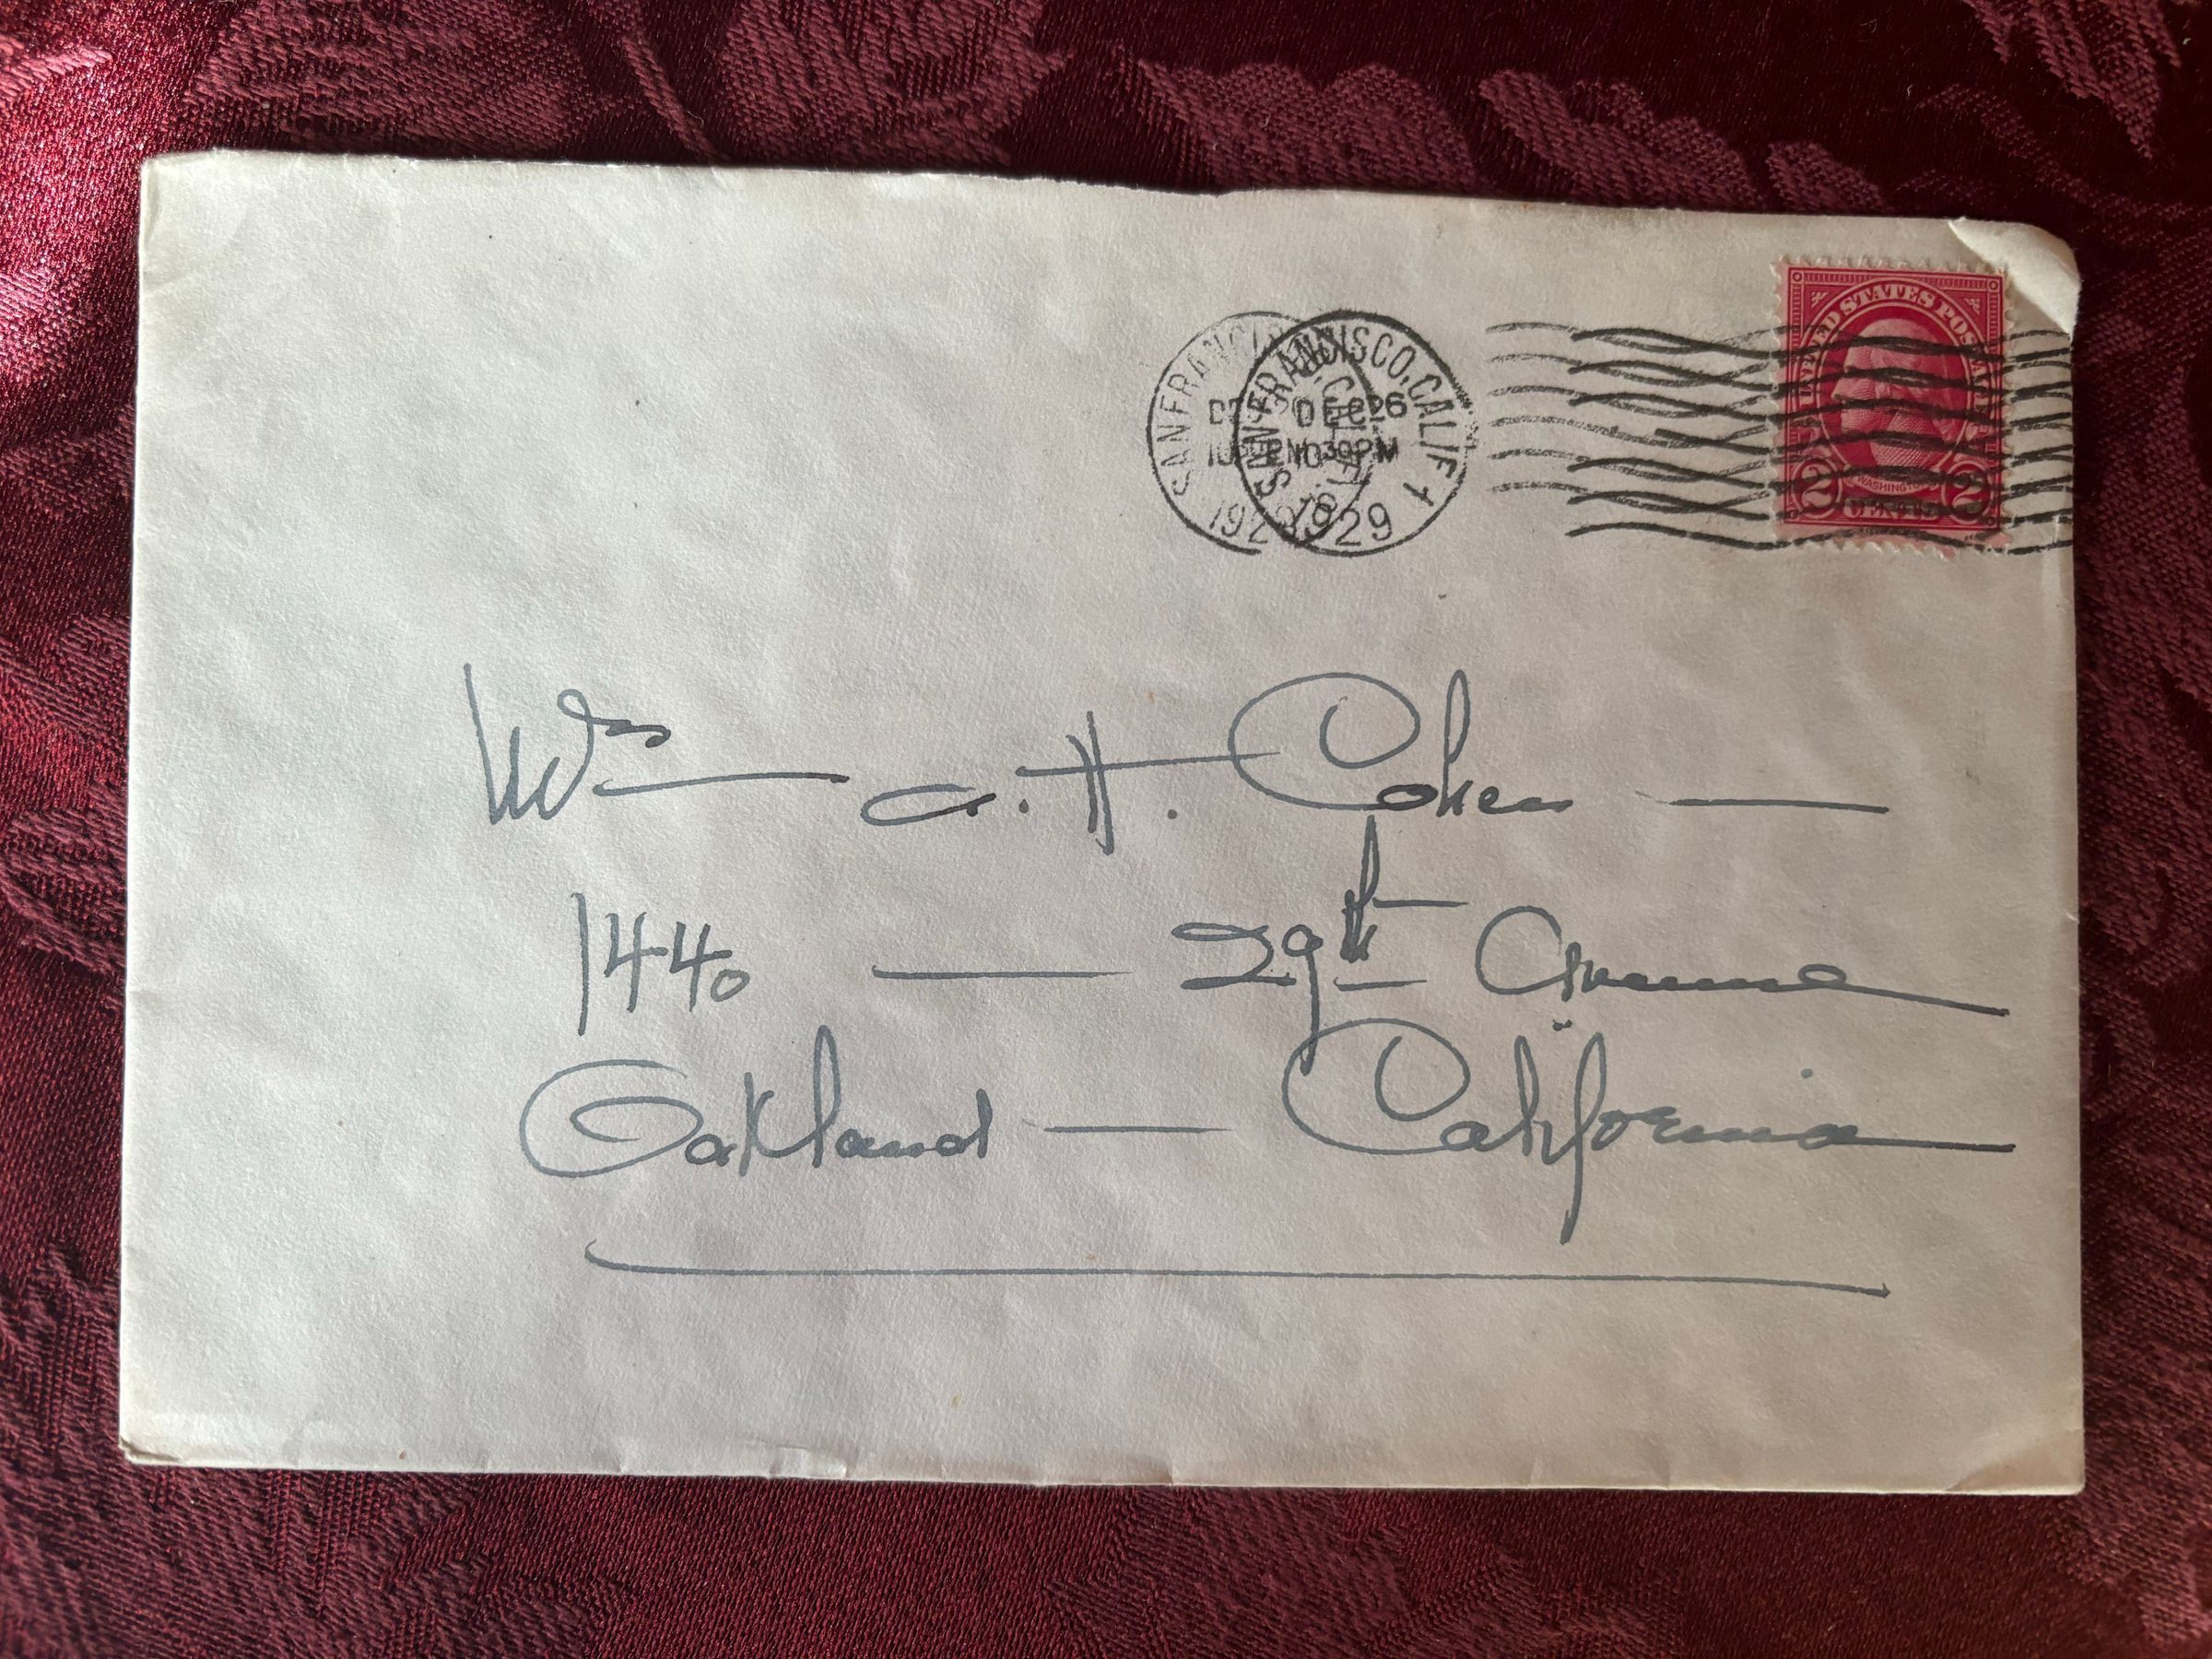 SAN FRANCISCO, CALIF. 1
DEC 26
1030 PM
1929
UNITED STATES POSTAGE
WASHINGTON
2 CENTS 2
a. H. Cohen —
1440 — 29th Avenue
Oakland — California